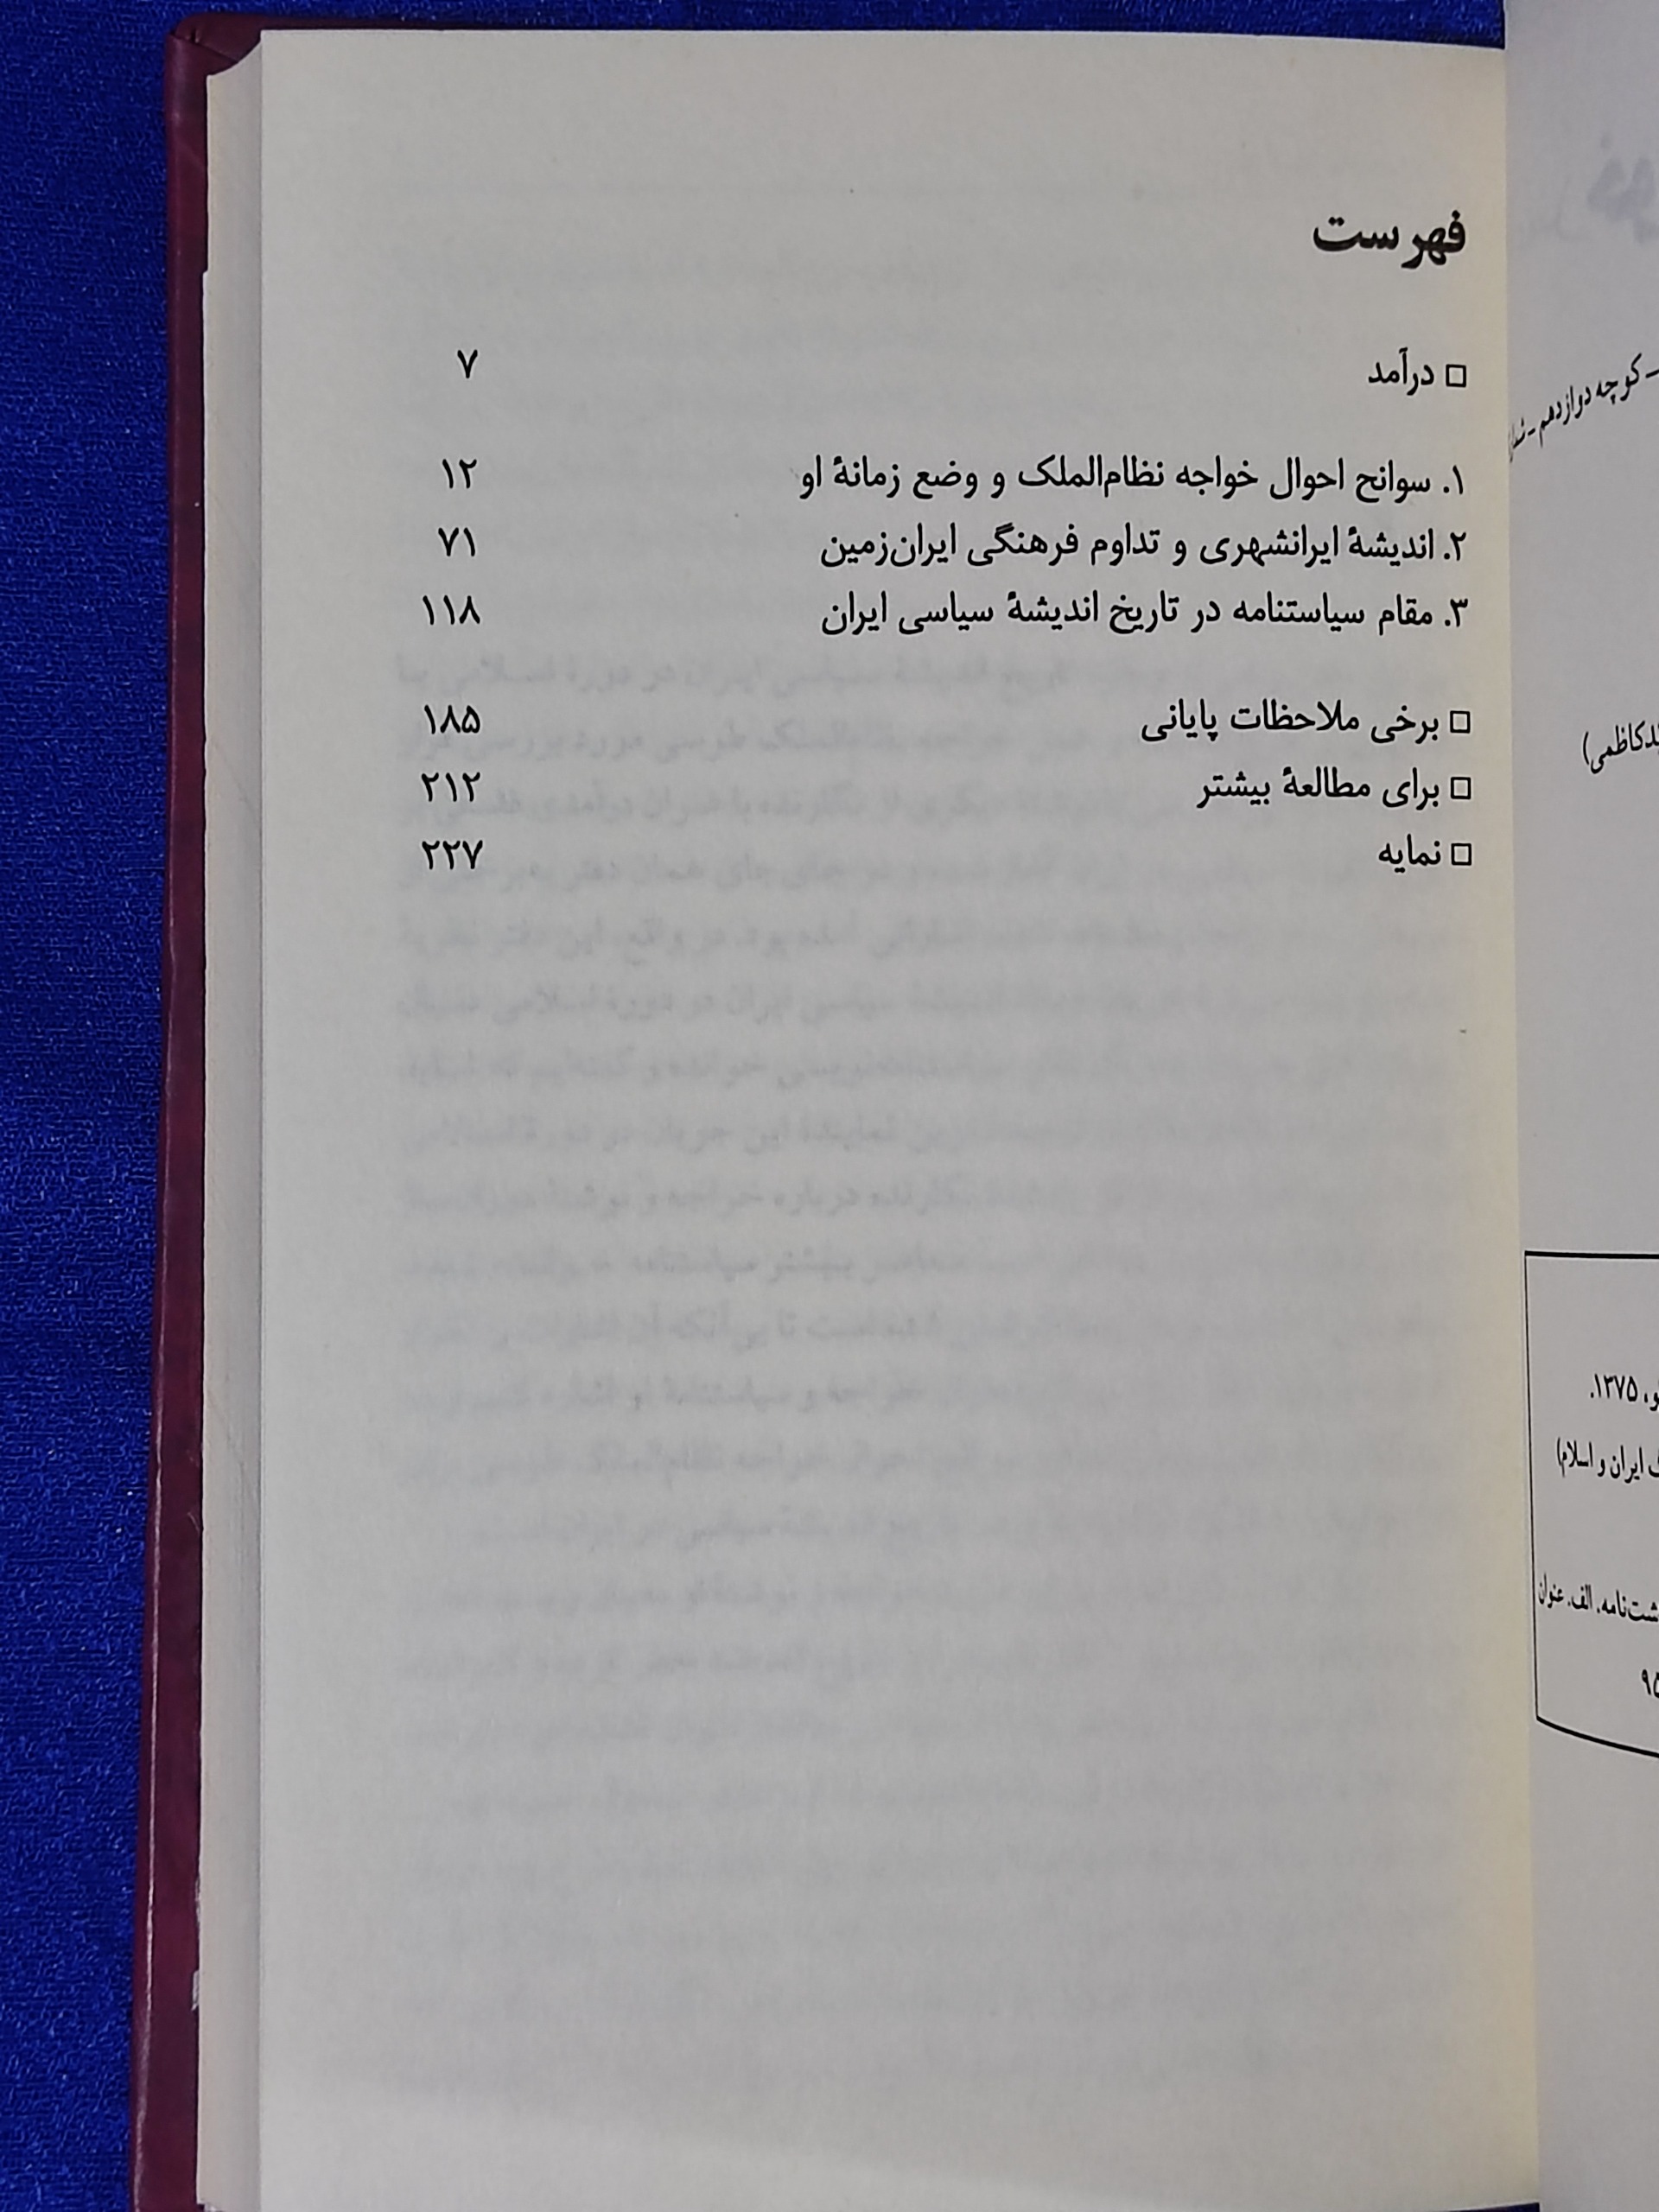 فهرست
□ درآمد ۷
۱. سوانح احوال خواجه نظام‌الملک و وضع زمانهٔ او ۱۲
۲. اندیشهٔ ایرانشهری و تداوم فرهنگی ایران‌زمین ۷۱
۳. مقام سیاستنامه در تاریخ اندیشهٔ سیاسی ایران ۱۱۸
□ برخی ملاحظات پایانی ۱۸۵
□ برای مطالعهٔ بیشتر ۲۱۲
□ نمایه ۲۲۷
ـ کوچه دوازدهم ـ
۱۳۷۵.
ایران و اسلام)
الف. عنوان